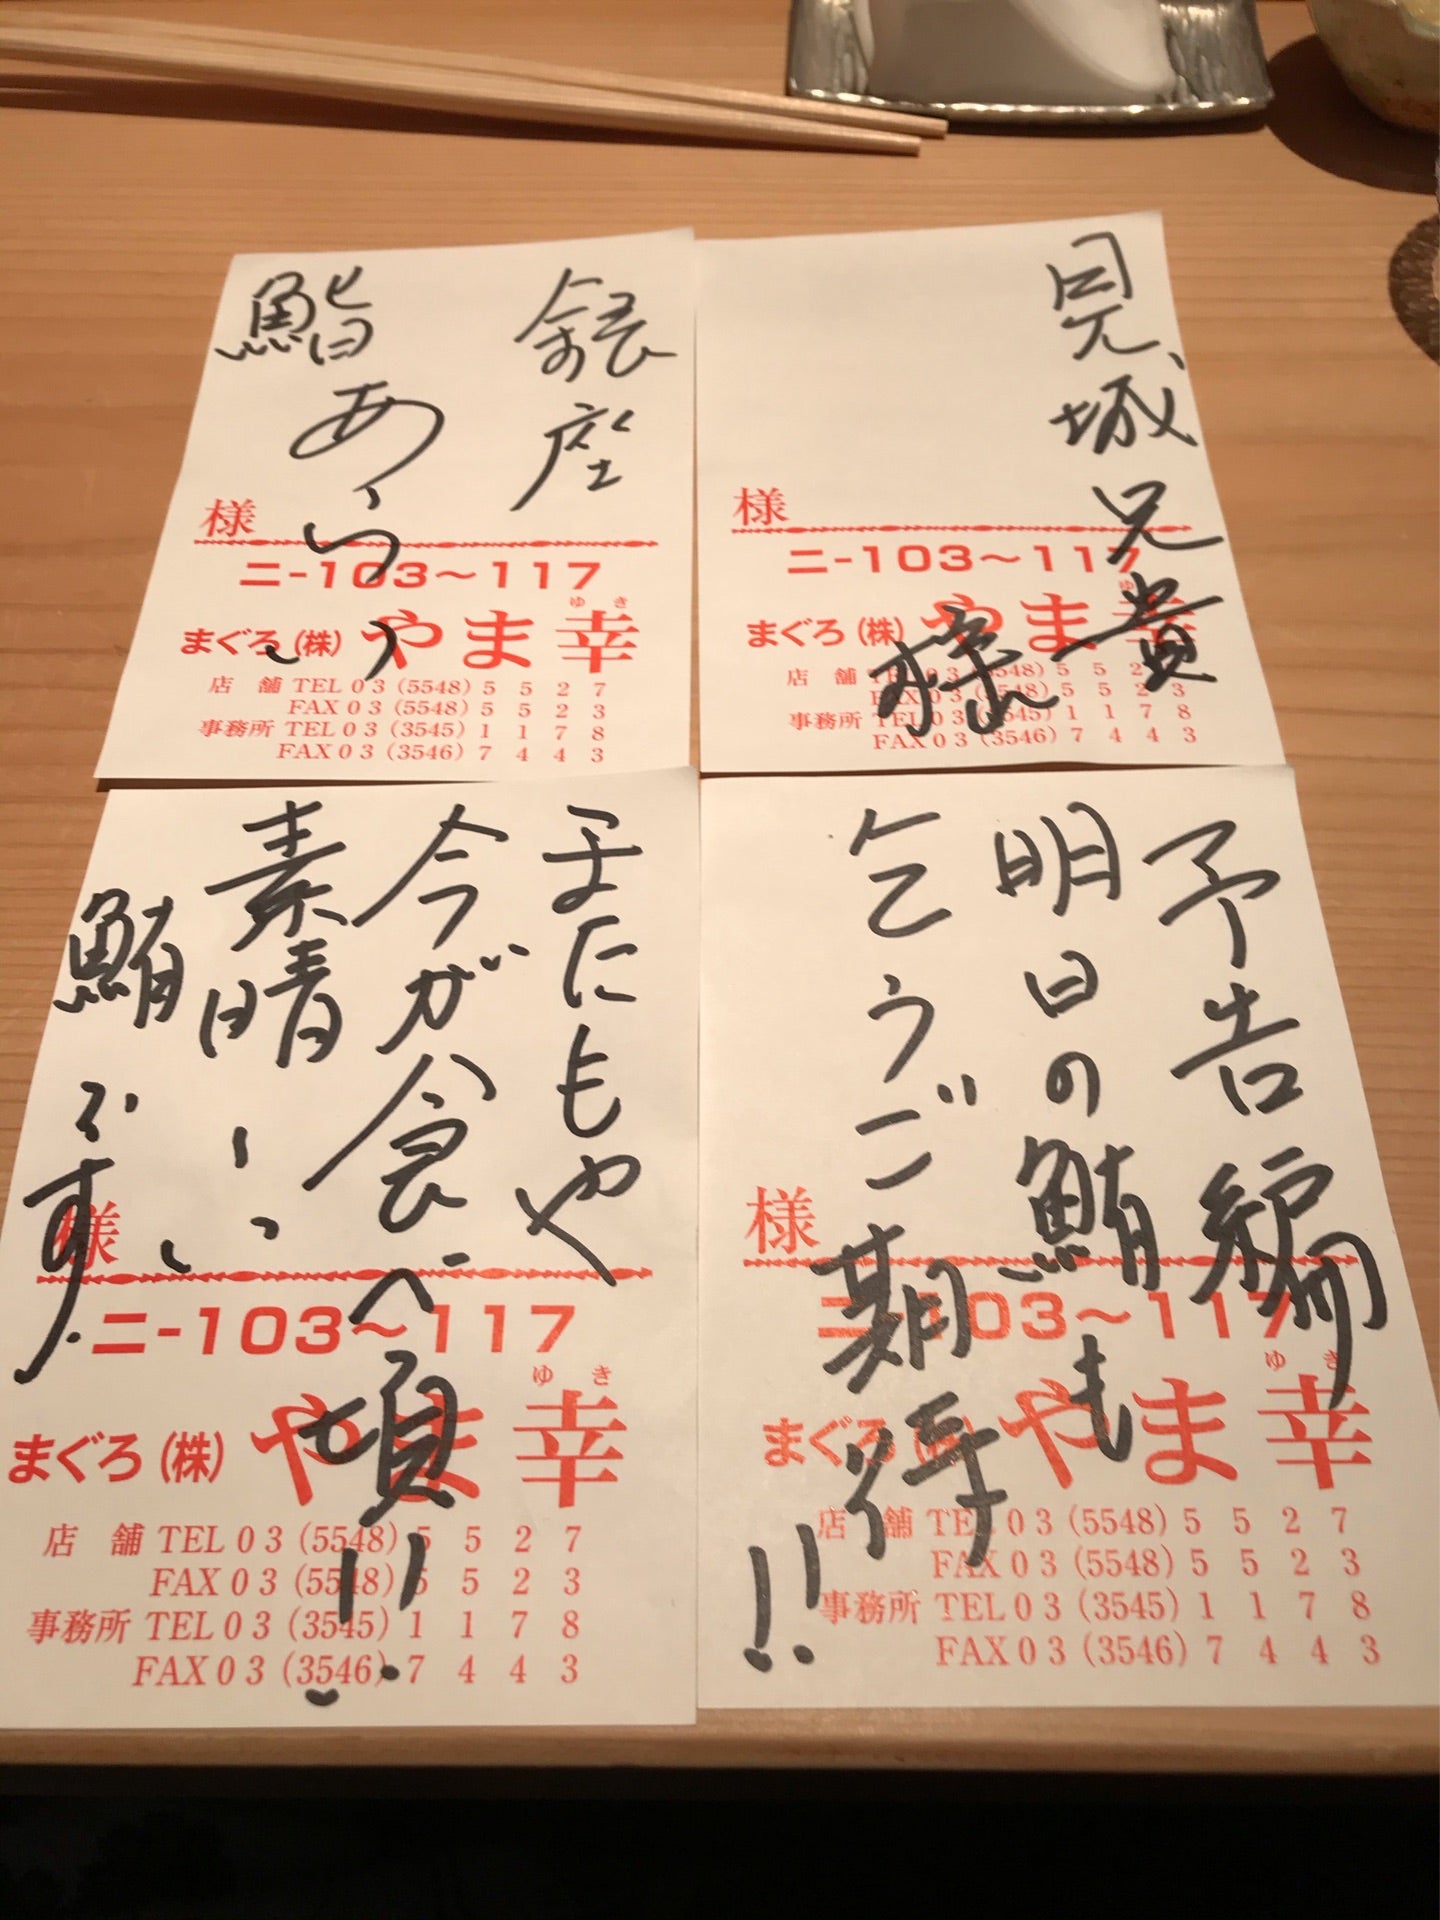 見城兄貴
様
様
ニ-103～117
ゆき
まぐろ(株)やま幸
店舗 TEL03(5548)5523
FAX03(5548)5523
事務所 TEL03(3545)1178
FAX03(3546)7443
銀座
鮨あらい
様
ニ-103～117
ゆき
まぐろ(株)やま幸
店舗 TEL03(5548)5527
FAX03(5548)5523
事務所 TEL03(3545)1178
FAX03(3546)7443
予告編
明日の鮪も
乞うご期待!!
様
ニ-103～117
ゆき
まぐろ(株)やま幸
店舗 TEL03(5548)5527
FAX03(5548)5523
事務所 TEL03(3545)1178
FAX03(3546)7443
今が食べ頃!!
素晴しい
鮪です。
様
ニ-103～117
ゆき
まぐろ(株)やま幸
店舗 TEL03(5548)5527
FAX03(5548)5523
事務所 TEL03(3545)1178
FAX03(3546)7443